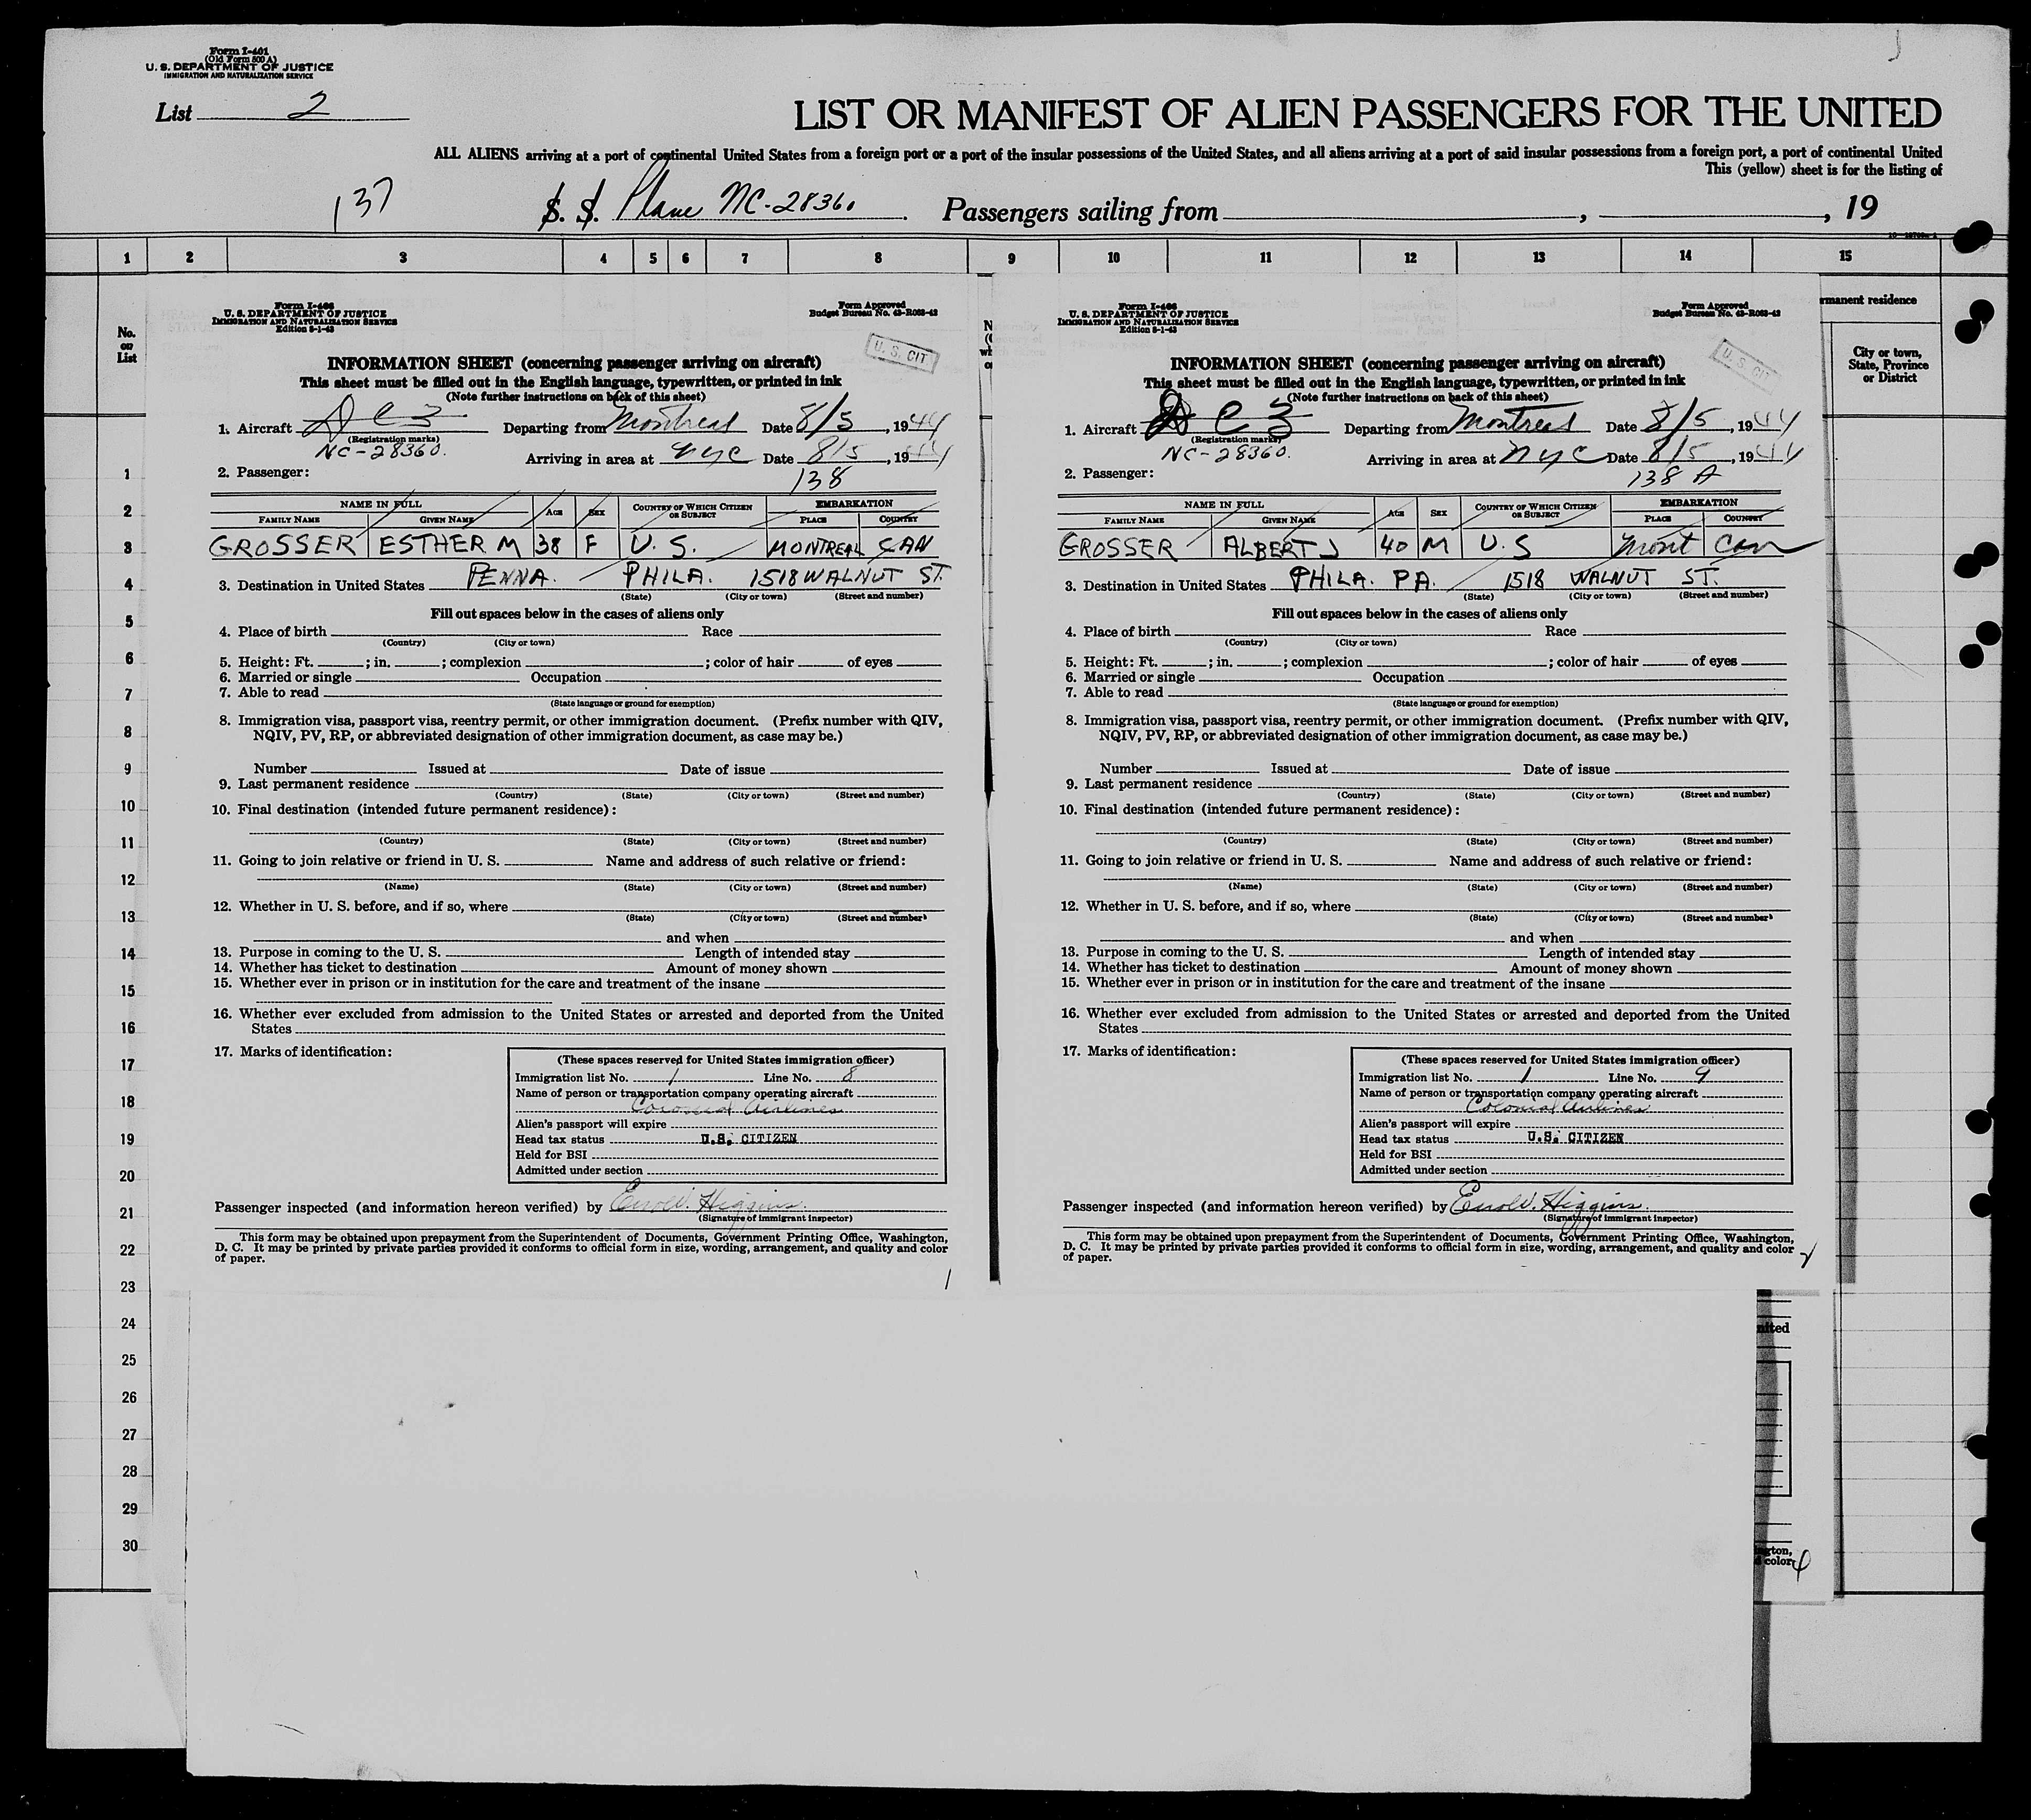 Form I-401
(Old Form 500 A)
U. S. DEPARTMENT OF JUSTICE
IMMIGRATION AND NATURALIZATION SERVICE
List 2
LIST OR MANIFEST OF ALIEN PASSENGERS FOR THE UNITED
ALL ALIENS arriving at a port of continental United States from a foreign port or a port of the insular possessions of the United States, and all aliens arriving at a port of said insular possessions from a foreign port, a port of continental United
This (yellow) sheet is for the listing of
137
S. S. Plane NC-28360. Passengers sailing from , , 19
1 2 3 4 5 6 7 8 9 10 11 12 13 14 15
No. on List
rmanent residence
City or town, State, Province or District
Form I-466
U. S. DEPARTMENT OF JUSTICE
IMMIGRATION AND NATURALIZATION SERVICE
Edition 8-1-43
Form Approved
Budget Bureau No. 43-R063-42
U. S. CIT
INFORMATION SHEET (concerning passenger arriving on aircraft)
This sheet must be filled out in the English language, typewritten, or printed in ink
(Note further instructions on back of this sheet)
1. Aircraft DC3 Departing from Montreal Date 8/5, 1944
(Registration marks)
NC-28360.
Arriving in area at NYC Date 8/5, 1944
2. Passenger: 138
NAME IN FULL AGE SEX COUNTRY OF WHICH CITIZEN OR SUBJECT EMBARKATION
FAMILY NAME GIVEN NAME PLACE COUNTRY
GROSSER ESTHER M 38 F U. S. MONTREAL CAN
3. Destination in United States PENNA. PHILA. 1518 WALNUT ST.
(State) (City or town) (Street and number)
Fill out spaces below in the cases of aliens only
4. Place of birth Race
(Country) (City or town)
5. Height: Ft. ; in. ; complexion ; color of hair of eyes
6. Married or single Occupation
7. Able to read
(State language or ground for exemption)
8. Immigration visa, passport visa, reentry permit, or other immigration document. (Prefix number with QIV,
NQIV, PV, RP, or abbreviated designation of other immigration document, as case may be.)
Number Issued at Date of issue
9. Last permanent residence
(Country) (State) (City or town) (Street and number)
10. Final destination (intended future permanent residence):
(Country) (State) (City or town) (Street and number)
11. Going to join relative or friend in U. S. Name and address of such relative or friend:
(Name) (State) (City or town) (Street and number)
12. Whether in U. S. before, and if so, where
(State) (City or town) (Street and number)
and when
13. Purpose in coming to the U. S. Length of intended stay
14. Whether has ticket to destination Amount of money shown
15. Whether ever in prison or in institution for the care and treatment of the insane
16. Whether ever excluded from admission to the United States or arrested and deported from the United
States
17. Marks of identification:
(These spaces reserved for United States immigration officer)
Immigration list No. 1 Line No. 8
Name of person or transportation company operating aircraft
Colonial Airlines
Alien's passport will expire
Head tax status U.S. CITIZEN
Held for BSI
Admitted under section
Passenger inspected (and information hereon verified) by Errol W. Higgins.
(Signature of immigrant inspector)
This form may be obtained upon prepayment from the Superintendent of Documents, Government Printing Office, Washington,
D. C. It may be printed by private parties provided it conforms to official form in size, wording, arrangement, and quality and color
of paper.
1
Form I-466
U. S. DEPARTMENT OF JUSTICE
IMMIGRATION AND NATURALIZATION SERVICE
Edition 8-1-43
Form Approved
Budget Bureau No. 43-R063-42
U. S. CIT
INFORMATION SHEET (concerning passenger arriving on aircraft)
This sheet must be filled out in the English language, typewritten, or printed in ink
(Note further instructions on back of this sheet)
1. Aircraft DC3 Departing from Montreal Date 8/5, 1944
(Registration marks)
NC-28360.
Arriving in area at NYC Date 8/5, 1944
2. Passenger: 138 A
NAME IN FULL AGE SEX COUNTRY OF WHICH CITIZEN OR SUBJECT EMBARKATION
FAMILY NAME GIVEN NAME PLACE COUNTRY
GROSSER ALBERT J 40 M U.S Mont Can
3. Destination in United States PHILA. PA. 1518 WALNUT ST.
(State) (City or town) (Street and number)
Fill out spaces below in the cases of aliens only
4. Place of birth Race
(Country) (City or town)
5. Height: Ft. ; in. ; complexion ; color of hair of eyes
6. Married or single Occupation
7. Able to read
(State language or ground for exemption)
8. Immigration visa, passport visa, reentry permit, or other immigration document. (Prefix number with QIV,
NQIV, PV, RP, or abbreviated designation of other immigration document, as case may be.)
Number Issued at Date of issue
9. Last permanent residence
(Country) (State) (City or town) (Street and number)
10. Final destination (intended future permanent residence):
(Country) (State) (City or town) (Street and number)
11. Going to join relative or friend in U. S. Name and address of such relative or friend:
(Name) (State) (City or town) (Street and number)
12. Whether in U. S. before, and if so, where
(State) (City or town) (Street and number)
and when
13. Purpose in coming to the U. S. Length of intended stay
14. Whether has ticket to destination Amount of money shown
15. Whether ever in prison or in institution for the care and treatment of the insane
16. Whether ever excluded from admission to the United States or arrested and deported from the United
States
17. Marks of identification:
(These spaces reserved for United States immigration officer)
Immigration list No. 1 Line No. 9
Name of person or transportation company operating aircraft
Colonial Airlines
Alien's passport will expire
Head tax status U.S. CITIZEN
Held for BSI
Admitted under section
Passenger inspected (and information hereon verified) by Errol W. Higgins.
(Signature of immigrant inspector)
This form may be obtained upon prepayment from the Superintendent of Documents, Government Printing Office, Washington,
D. C. It may be printed by private parties provided it conforms to official form in size, wording, arrangement, and quality and color
of paper.
1
2
3
4
5
6
7
8
9
10
11
12
13
14
15
16
17
18
19
20
21
22
23
24
25
26
27
28
29
30
nited
ngton,
d color